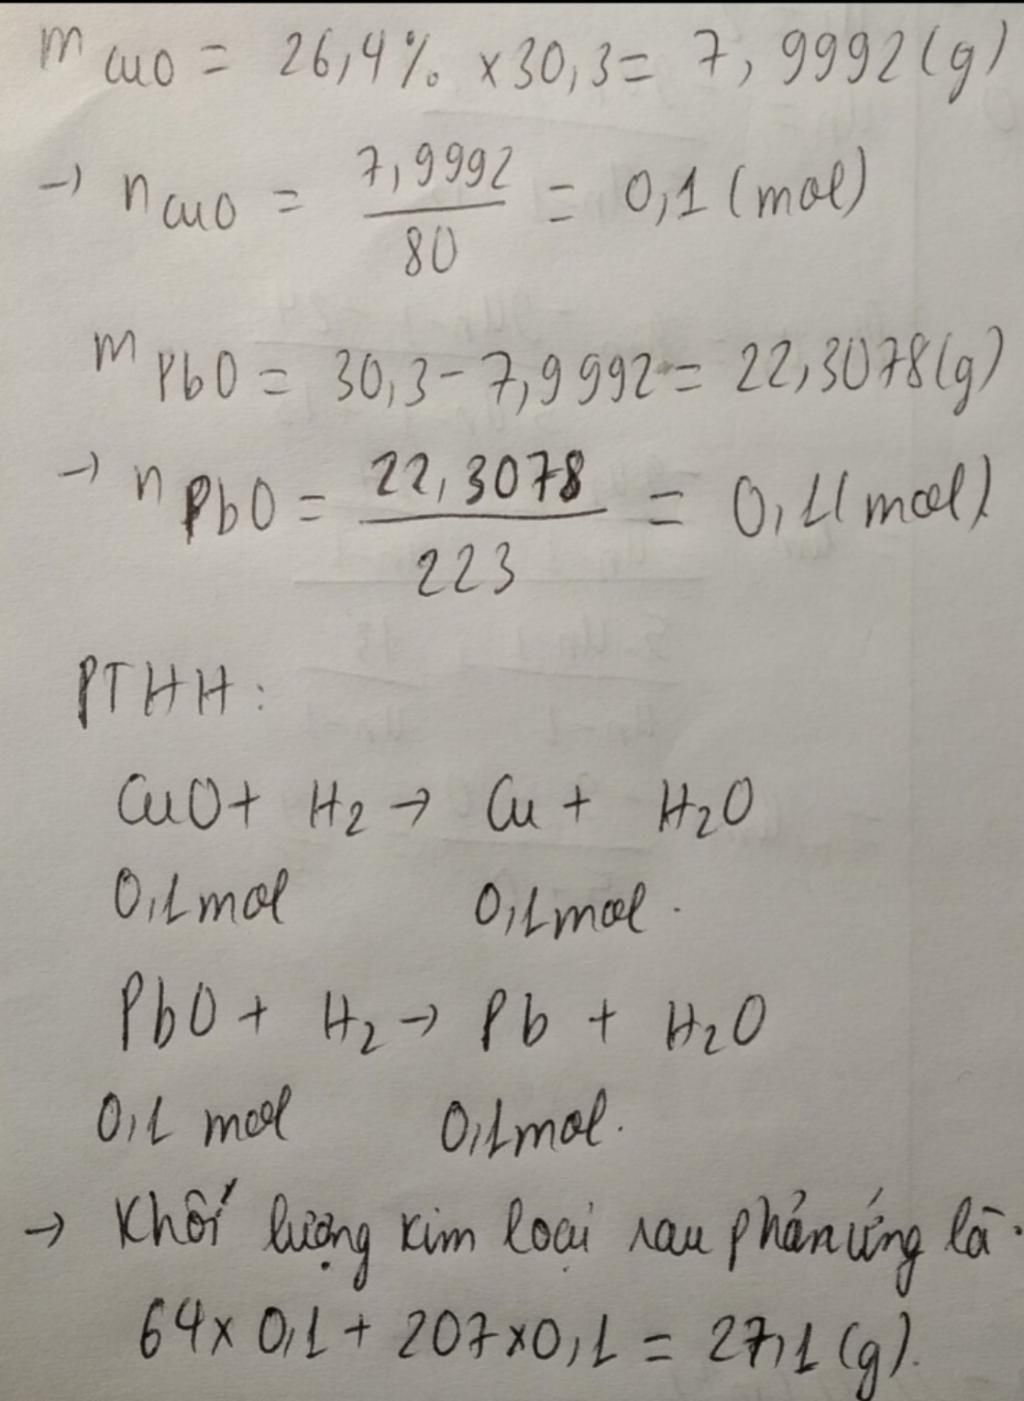 m CuO = 26,4% x 30,3 = 7,9992 (g)
→ n CuO = 7,9992 / 80 = 0,1 (mol)
m PbO = 30,3 - 7,9992 = 22,3078 (g)
→ n PbO = 22,3078 / 223 = 0,1 (mol)
PTHH:
CuO + H2 → Cu + H2O
0,1 mol 0,1 mol.
PbO + H2 → Pb + H2O
0,1 mol 0,1 mol.
→ Khối lượng kim loại sau phản ứng là.
64 x 0,1 + 207 x 0,1 = 27,1 (g).